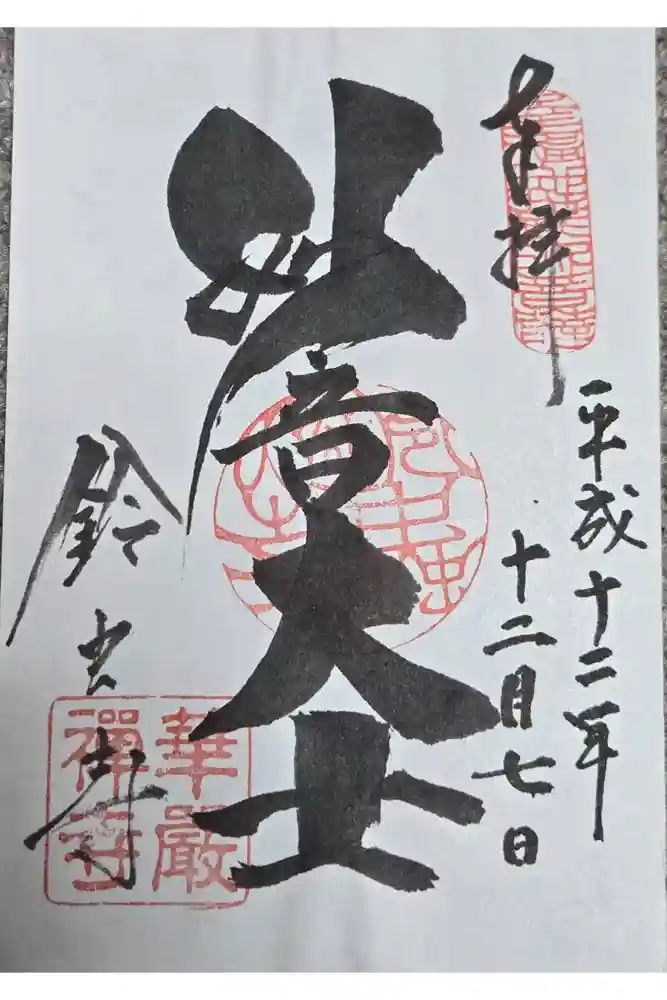 奉拝
平成十二年
十二月七日
妙音大士
鈴虫寺
華嚴
禪寺